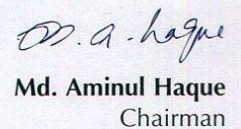 M. A. Haque
Md. Aminul Haque
Chairman